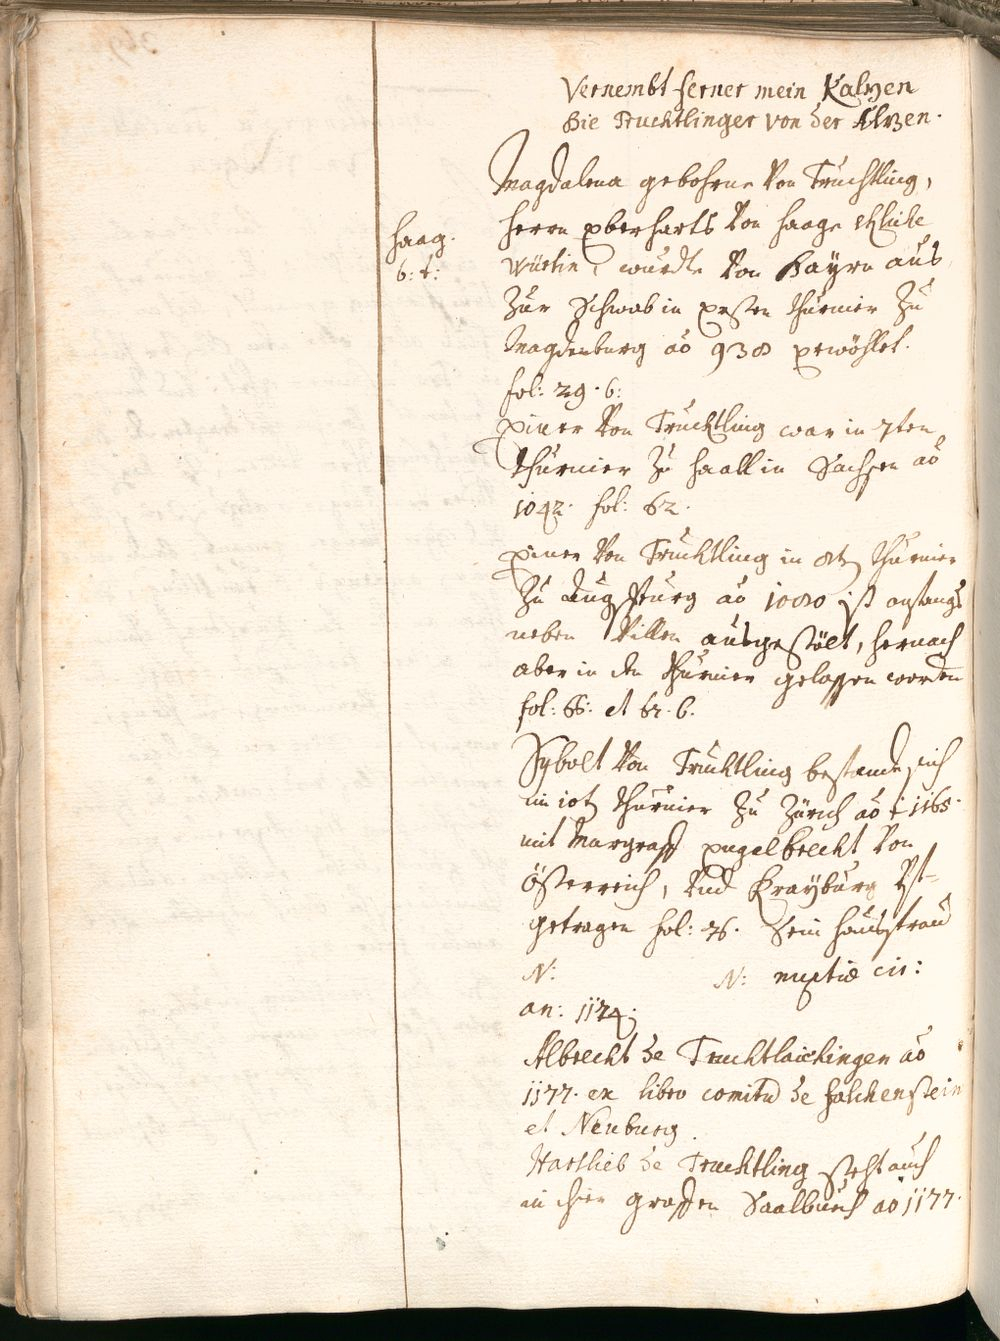 Vernembt ferner mein Kalzen
Die Truchtlinger von der Alzen.
Magdalena gebohrne Von Truchtling,
Herrn Eberharts Von Haags ehliche
Haag.
6: t:
Würtin, wurdte Von Bayrn aus
Zur Schwab in Ersten thurnier Zu
Magdenburg ao 938 erwöhlet.
fol: 29. 6:
Einer Von Truchtling war in 7ten
thurnier Zu Haall in Sachsen ao
1042. fol: 62.
Einer Von Truchtling in 8t thurnier
Zu Augspurg ao 1080 ist anfangs
neben Villen ausgestölt, hernach
aber in den thurnier gelassen worden
fol: 66: et 67. 6.
Sybolt Von Truchtling bestande sich
im 10t thurnier Zu Zürich ao 1165.
mit Margraff Engelbrecht Von
Österreich, Vnd Krayburg
getragen fol: 76. Sein hausfrau
N: N: nuptiæ cir:
an: 1174.
Albrecht de Truchtlaichingen ao
1177. ex libro comitu de Falchenstein
et Neuburg.
Hartlieb de Truchtling steht auch
in grossen Saalbuech ao 1177.